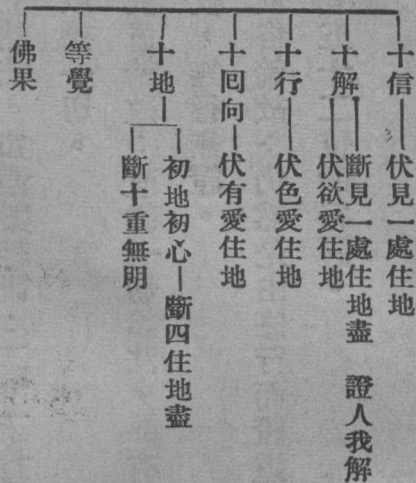 十信—伏見一處住地
十解—斷見一處住地盡　證人我解
伏欲愛住地
十行—伏色愛住地
十囘向—伏有愛住地
十地—初地初心—斷四住地盡
斷十重無明
等覺
佛果